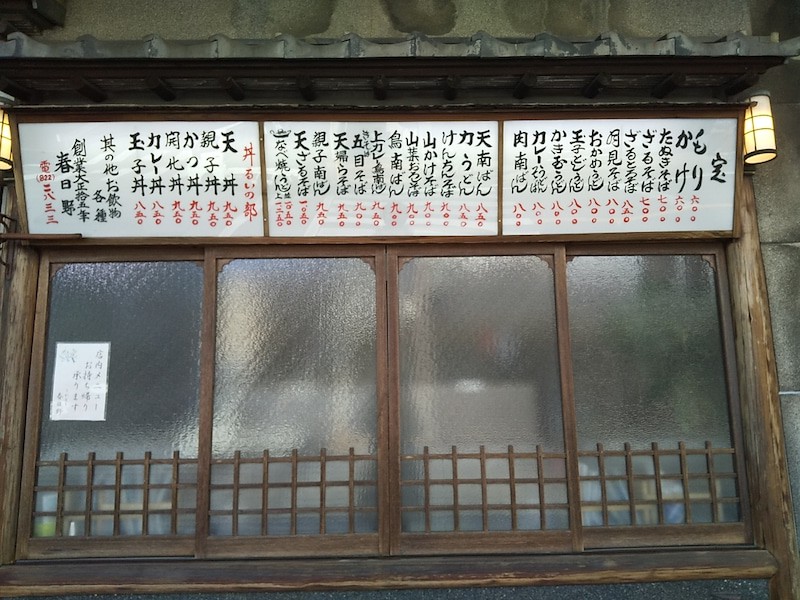 定
もり 六〇〇
かけ 六〇〇
たぬきそば 七〇〇
ざるそば 七〇〇
ざるとろそば 八五〇
月見そば 八〇〇
おかめうどん 八〇〇
玉子とじうどん 八〇〇
かきむうどん 八〇〇
カレーうどん 八〇〇
肉南ばん 八〇〇
天南ばん 八五〇
力うどん 八五〇
けんちんそば 九〇〇
山かけそば 九〇〇
山菜おろそば 九〇〇
鳥南ばん 九〇〇
上カレー 九五〇
五目そば 九五〇
天婦らそば 九〇〇
親子南ばん 九五〇
天ざるそば 一〇五〇
なべ焼うどん 並 一〇五〇 上 一二五〇
丼るいの部
天丼 九五〇
親子丼 九五〇
かつ丼 九五〇
開化丼 九五〇
カレー丼 八五〇
玉子丼 八五〇
其の他お飲物
各種
創業大正拾五年
春日野
電(822)二八三三
店内メニュー
お持ち帰り
承ります
春日野